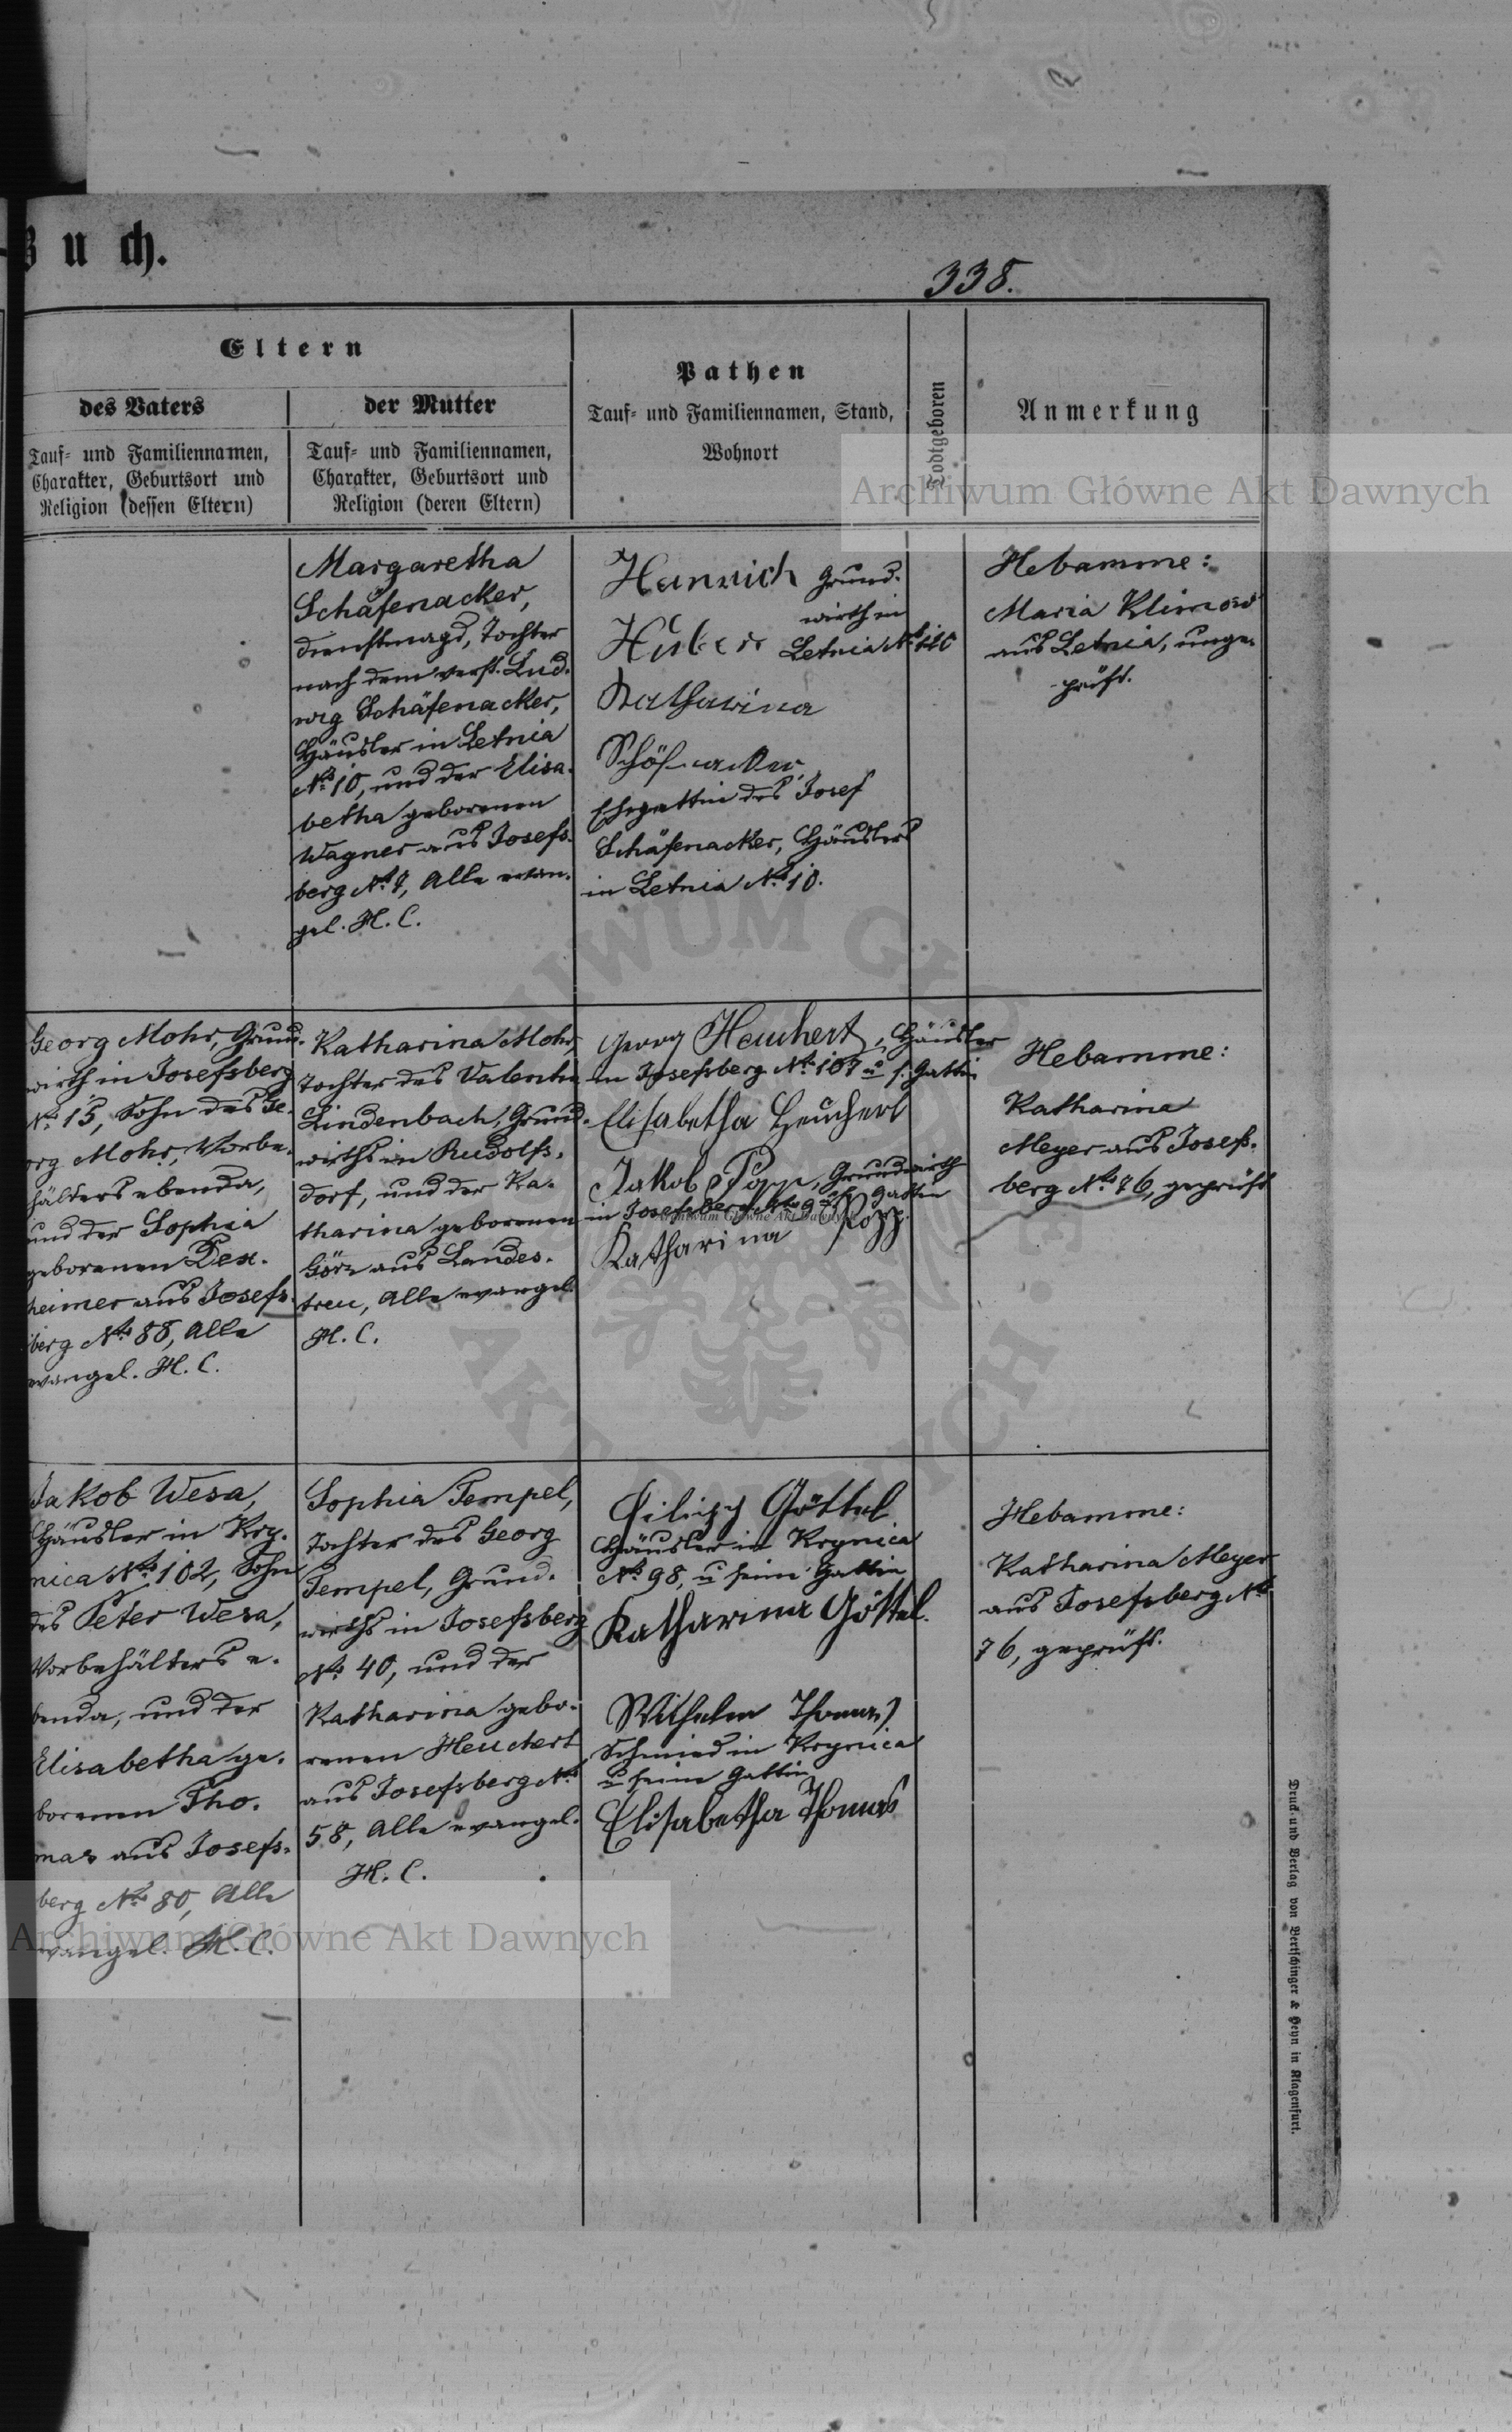 Buch.
338.
Eltern
des Vaters
Tauf- und Familiennamen,
Charakter, Geburtsort und
Religion (dessen Eltern)
der Mutter
Tauf- und Familiennamen,
Charakter, Geburtsort und
Religion (deren Eltern)
Pathen
Tauf- und Familiennamen, Stand,
Wohnort
Todtgeboren
Anmerkung
Archiwum Główne Akt Dawnych
Margaretha
Schäfenacker,
Dienstmagd, Tochter
nach dem verst. Lud-
wig Schäfenacker,
Häusler in Letnia
No 10, und der Elisa-
betha geborenen
Wagner aus Josefs-
berg No 7, Alle evan-
gel. H. C.
Heinrich Grund-
wirth in
Huber Letnia No 110
Katharina
Schöfnacker
Ehegattin des Josef
Schäfenacker, Häuslers
in Letnia No 10.
Hebamme:
Maria Klimow
aus Letnia, unge-
prüft.
Georg Mohr, Grund-
wirth in Josefsberg
No 15, Sohn des Ge-
org Mohr, Vorbe-
hälters ebenda,
und der Sophia
geborenen Dex-
heimer aus Josefs-
berg No 88, Alle
evangel. H. C.
Katharina Mohr,
Tochter des Valentin
Lindenbach, Grund-
wirths in Rudolfs-
dorf, und der Ka-
tharina geborenen
Görz aus Landes-
treu, Alle evangel.
H. C.
Georg Heuchert, Häusler
in Josefsberg No 107 u s. Gattin
Elisabetha Heuchert
Jakob Popp, Grundwirth
in Josefsberg No 9 u s. Gattin
Katharina Popp.
Hebamme:
Katharina
Meyer aus Josefs-
berg No 76, geprüft
Jakob Wesa,
Häusler in Kry-
nica No 102, Sohn
des Peter Wesa,
Vorbehälters e-
benda, und der
Elisabetha ge-
borenen Tho-
mas aus Josefs-
berg No 80, Alle
evangel. H. C.
Sophia Tempel,
Tochter des Georg
Tempel, Grund-
wirths in Josefsberg
No 40, und der
Katharina gebo-
renen Heuchert
aus Josefsberg No
58, Alle evangel.
H. C.
Filipp Göttel
Häusler in Krynica
No 98, u seine Gattin
Katharina Göttel.
Wilhelm Thomas
Schmied in Krynica
u seine Gattin
Elisabetha Thomas
Hebamme:
Katharina Meyer
aus Josefsberg No
76, geprüft.
Archiwum Główne Akt Dawnych
Druck und Verlag von Bertschinger & Heyn in Klagenfurt.